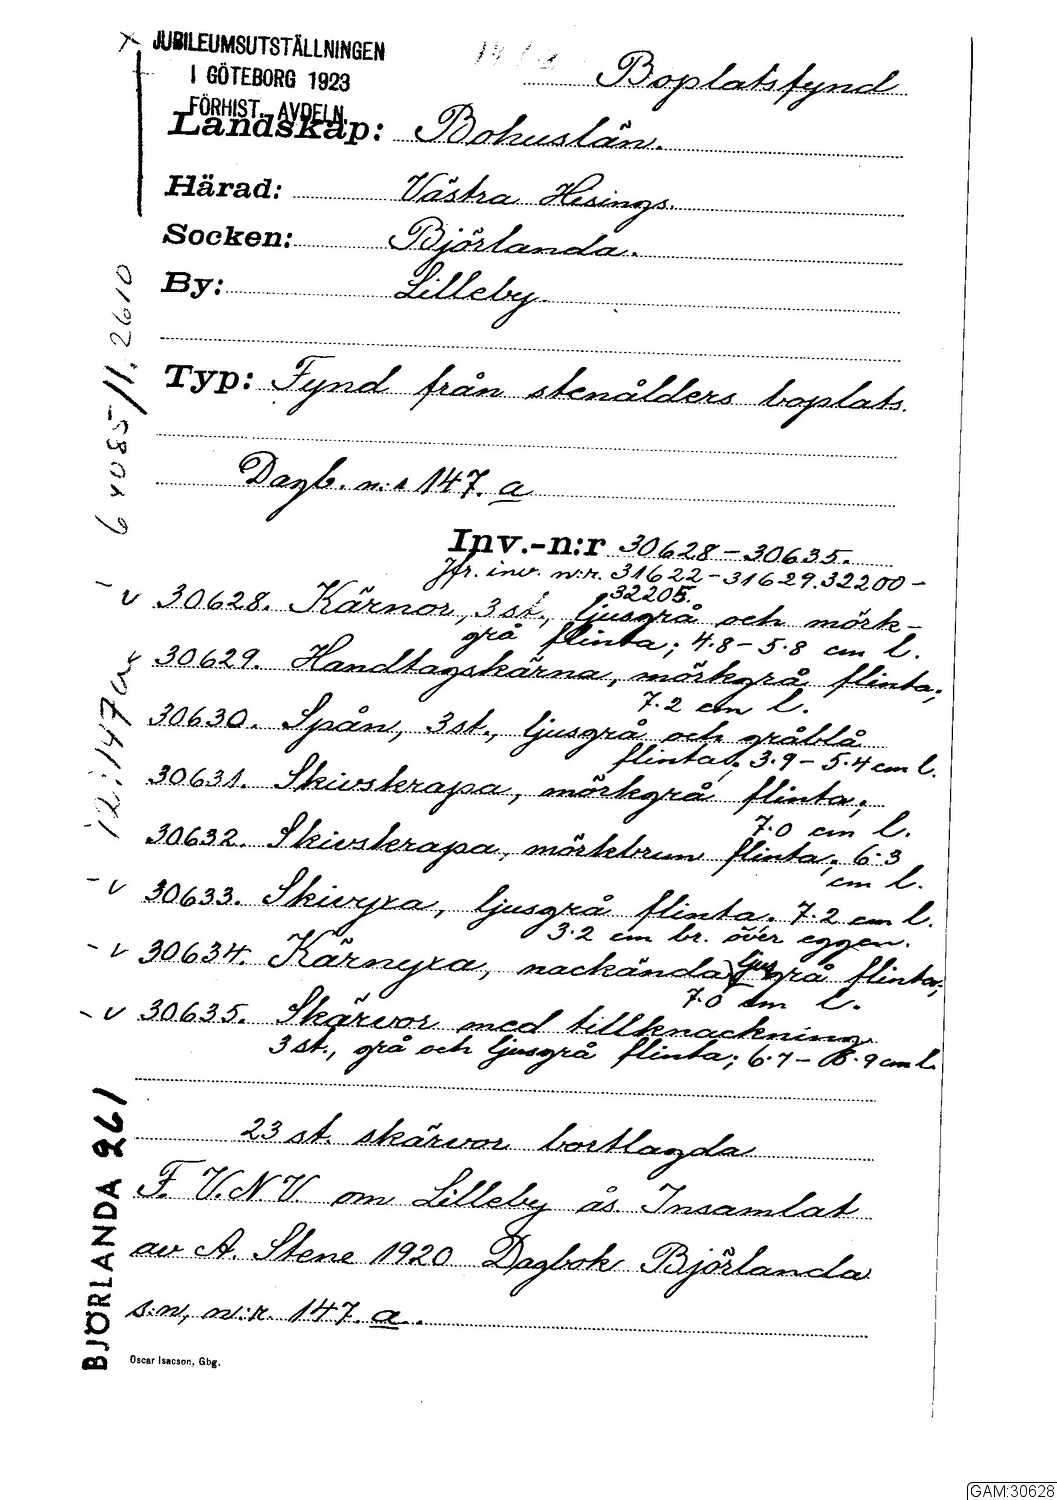 JUBILEUMSUTSTÄLLNINGEN
I GÖTEBORG 1923
FÖRHIST. AVDELN.
Boplatsfynd
Landskap: Bohuslän.
Härad: Västra Hisings.
Socken: Björlanda.
By: Lilleby.
Typ: Fynd från stenålders boplats.
Dagb. n:r 147. a
Inv.-n:r 30628-30635.
Jfr. inv. n:r. 31622-31629. 32200-
32205.
v 30628. Kärnor, 3 st., ljusgrå och mörk-
grå flinta; 4.8-5.8 cm l.
30629. Handtagskärna, mörkgrå flinta;
7.2 cm l.
30630. Spån, 3 st., ljusgrå och gråblå
flinta; 3.9-5.4 cm l.
30631. Skivskrapa, mörkgrå flinta;
7.0 cm l.
30632. Skivskrapa, mörkbrun flinta; 6.3
cm l.
- v 30633. Skivyxa, ljusgrå flinta. 7.2 cm l.
3.2 cm br. över eggen.
- v 30634. Kärnyxa, nackända, ljusgrå flinta;
7.0 cm l.
- v 30635. Skärvor med tillknackning
3 st., grå och ljusgrå flinta; 6.7- .9 cm l.
23 st. skärvor bortlagda
F. V.N.V. om Lilleby ås. Insamlat
av A. Stene 1920 Dagbok Björlanda
s:n, n:r. 147. a.
Oscar Isacson, Gbg.
64085/1. 2610
12:147
BJÖRLANDA 261
GAM:30628